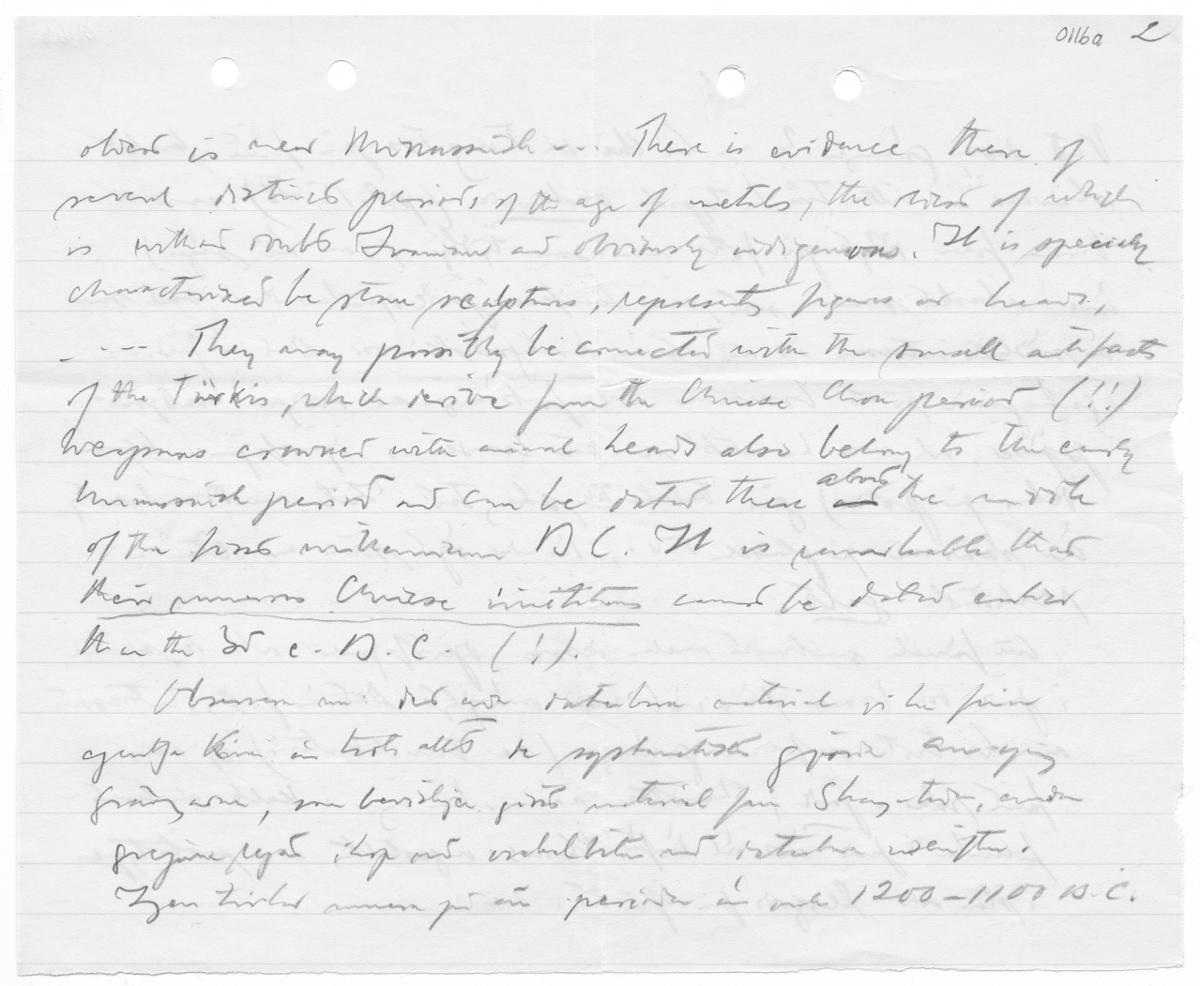 0116a 2
oldest is near Minussinsk --- There is evidence there of
several distinct periods of the age of metals, the oldest of which
is without doubt Iranian and obviously indigenous. It is specially
characterized be stone sculptures, representing figures or heads,
- --- They may possibly be connected with the small artifacts
of the Türkis, which derive from the Chinese Chou period (!!)
Weapons crowned with animal heads also belong to the early
Minussinsk period and can be dated there about the middle
of the first millennium B C. It is remarkable that
their numerous Chinese imitations cannot be dated earlier
than the 3d c. B. C. (!).
Observera att det enda daterbara material vi ha från
egentliga Kina är trots allt de systematiskt gjorda An-yang
grävningarna, som bevisligen givit material från Shang-tiden, medan
grejorna
1200–1100 B.C.